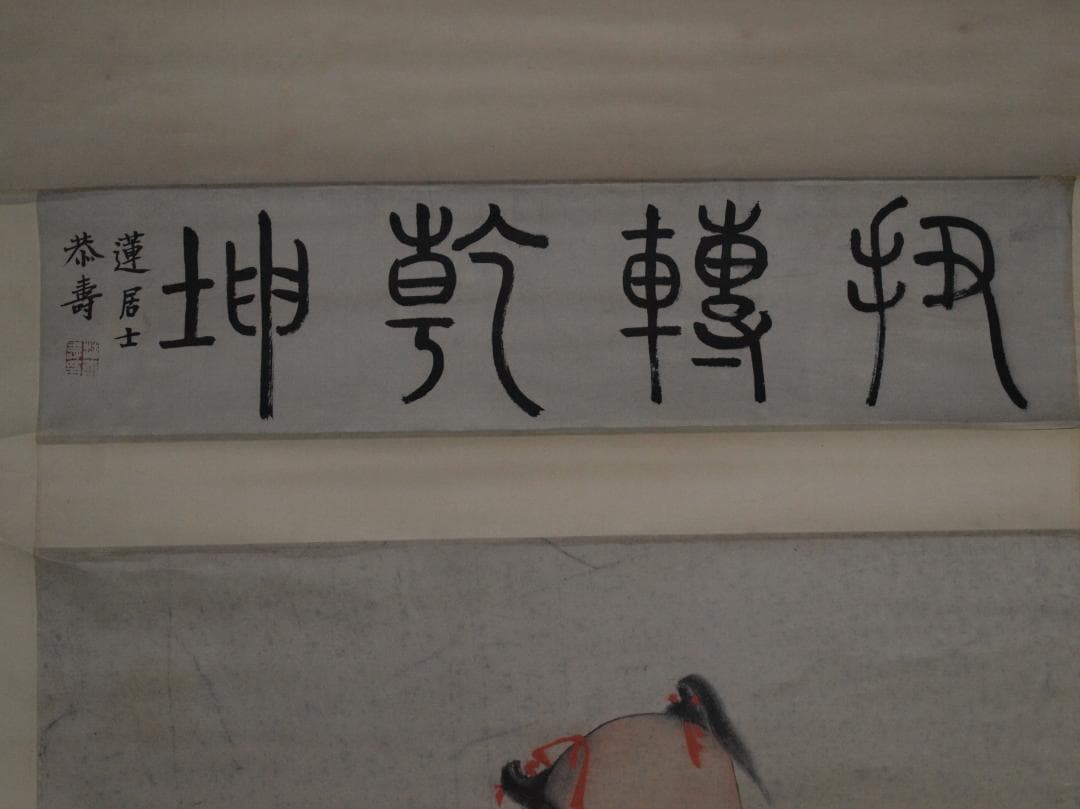 扭轉乾坤
蓮居士
恭壽